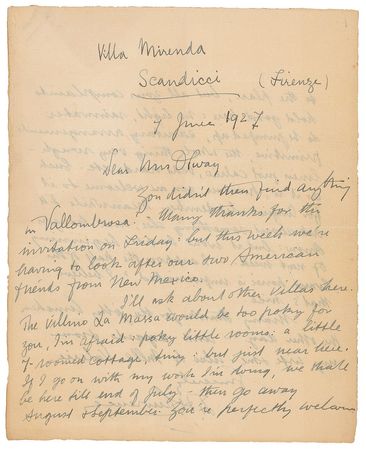 Villa Mirenda
Scandicci (Firenze)
7 June 1927
Dear Mrs Otway
You didn't then find anything
in Vallombrosa. - Many thanks for the
invitation on Friday: but this week we're
having to look after our two American
friends from New Mexico.
I'll ask about other Villas here.
The Villino La Massa would be too poky for
you, I'm afraid: poky little rooms: a little
7-roomed cottage, tiny: but just near here.
If I go on with my work I'm doing, we shall
be here till end of July - then go away
August & September. You're perfectly welcome